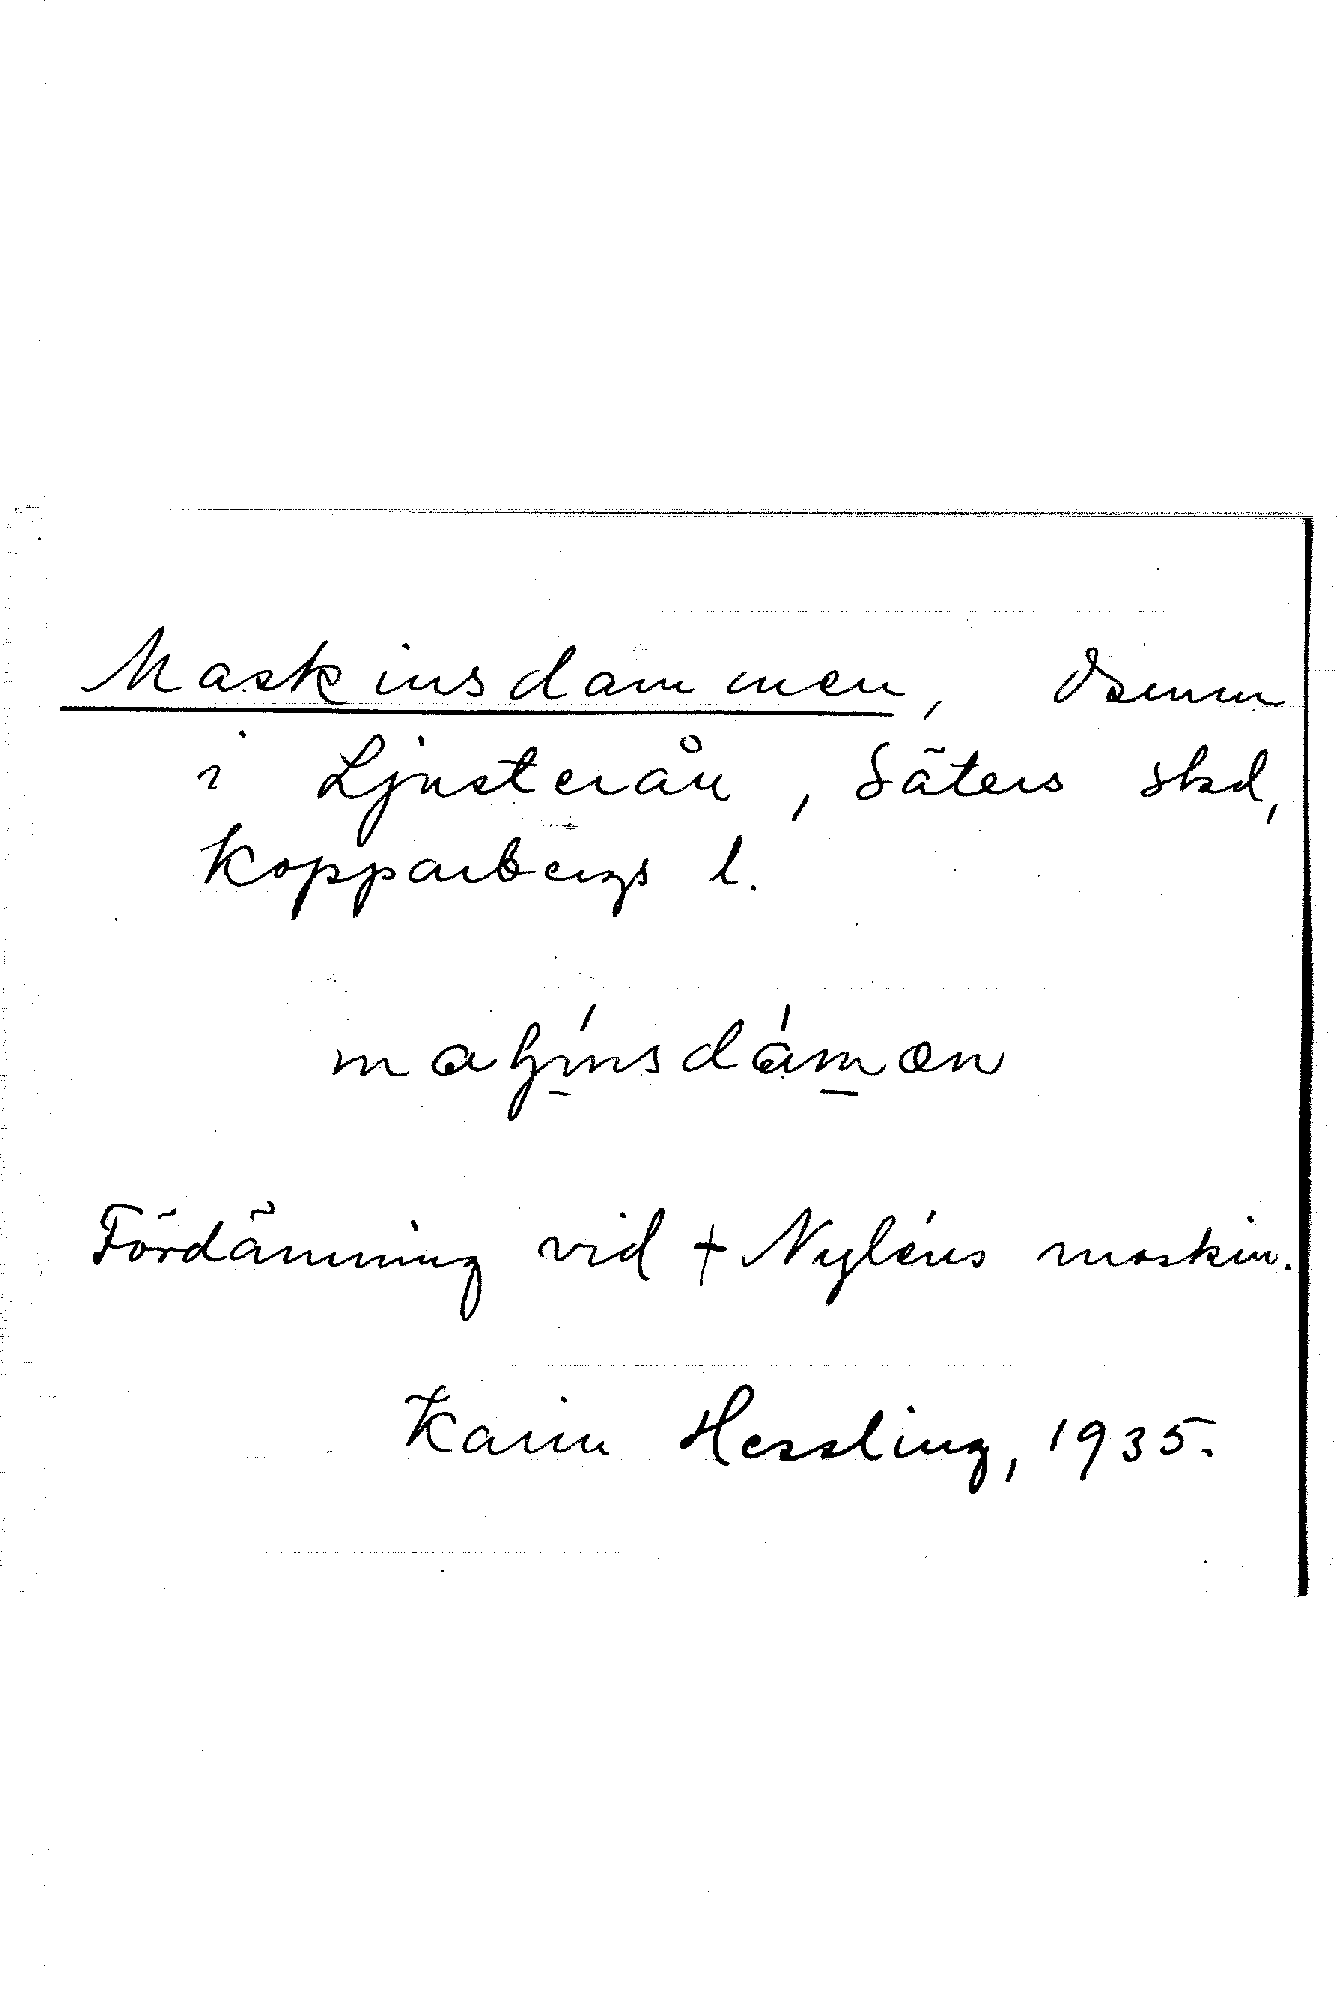 Maskinsdammen, Damm
i Ljusterån, Säters stad,
Kopparbergs l.
Fördämning vid + Nyléns maskin.
Karin Hessling, 1935.